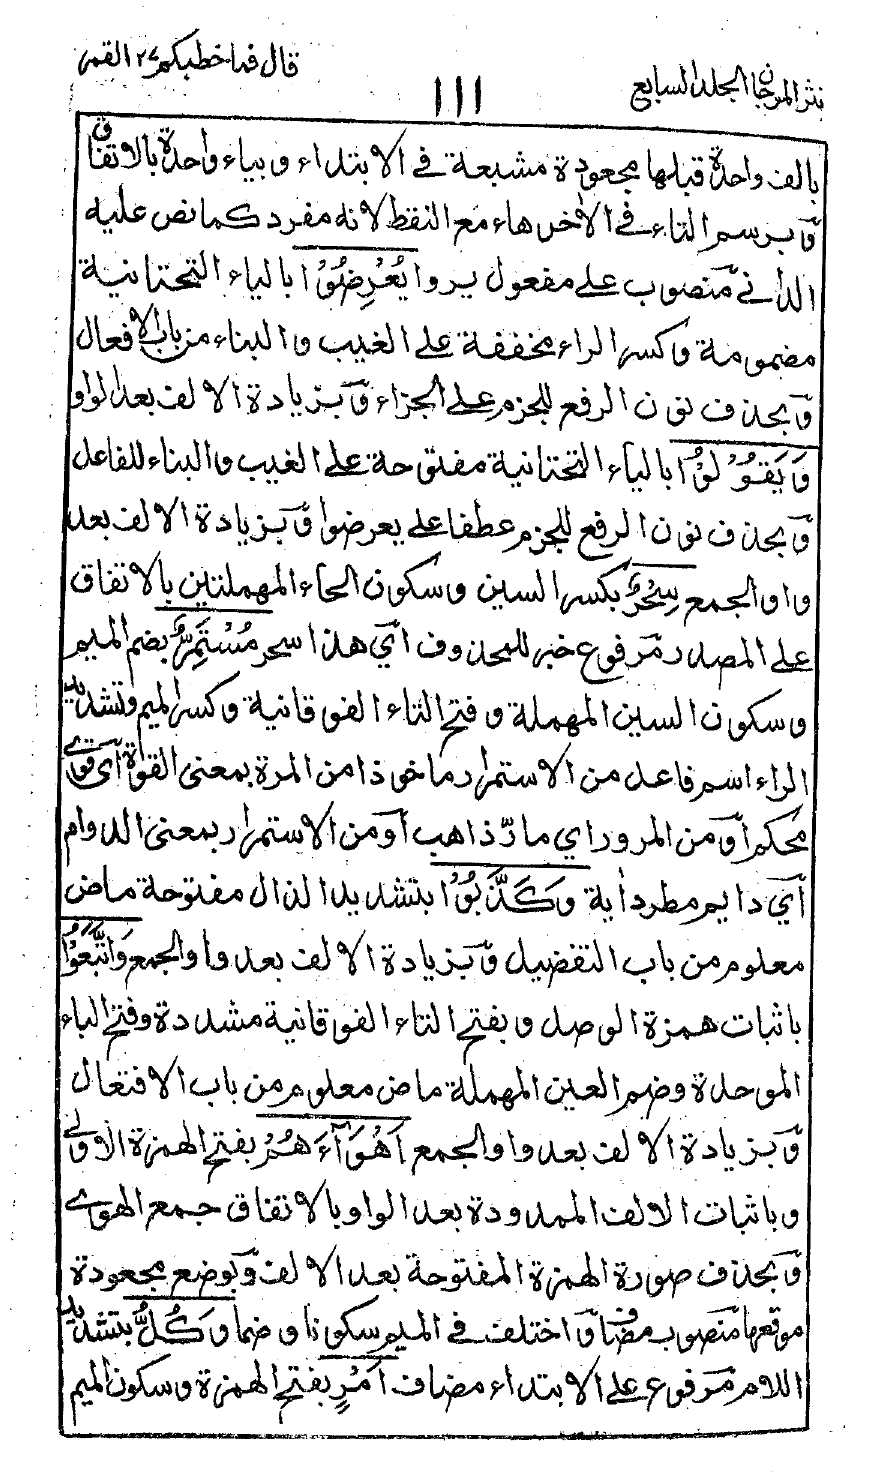 قال فما خطبكم ٢٧ القمر
١١١
نثر المرجان الجلد السابع
بالف واحدة قبلها مجعودة مشبعة في الابتداء وبياء واحدة بالاتفاق
وبرسم التاء في الأخر هاء مع النقط لانه مفرد كما نص عليه
الداني منصوب على مفعول يروا يُعْرِضُوْا بالياء التحتانية
مضمومة وكسر الراء مخففة على الغيب والبناء من باب الافعال
وبحذف نون الرفع للجزم على الجزاء وبزيادة الالف بعد الواو
وَيَقُوْلُوْا بالياء التحتانية مفتوحة على الغيب والبناء للفاعل
وبحذف نون الرفع للجزم عطفا على يعرضوا وبزيادة الالف بعد
واو الجمع سِحْرٌ بكسر السين وسكون الحاء المهملتين بالاتفاق
على المصدر مرفوع خبر للمحذوف اي هذا سحر مُسْتَمِرٌّ بضم الميم
وسكون السين المهملة وفتح التاء الفوقانية وكسر الميم وتشديد
الراء اسم فاعل من الاستمرار ماخوذا من المرة بمعنى القوة اي قوي
محكم او من المرور اي مارّ ذاهب او من الاستمرار بمعنى الدوام
اي دايم مطرد اية وَكَذَّبُوْا بتشديد الذال مفتوحة ماض
معلوم من باب التفعيل وبزيادة الالف بعد واو الجمع وَاتَّبَعُوْا
باثبات همزة الوصل وبفتح التاء الفوقانية مشددة وفتح الباء
الموحدة وضم العين المهملة ماض معلوم من باب الافتعال
وبزيادة الالف بعد واو الجمع اَهْوَآءَهُمْ بفتح الهمزة الاولى
وباثبات الالف الممدودة بعد الواو بالاتفاق جمع الهوى
وبحذف صورة الهمزة المفتوحة بعد الالف وبوضع مجعودة
موقعها منصوب مضاف واختلف في الميم سكونا وضما وَكُلُّ بتشديد
اللام مرفوع على الابتداء مضاف اَمْرٍ بفتح الهمزة وسكون الميم